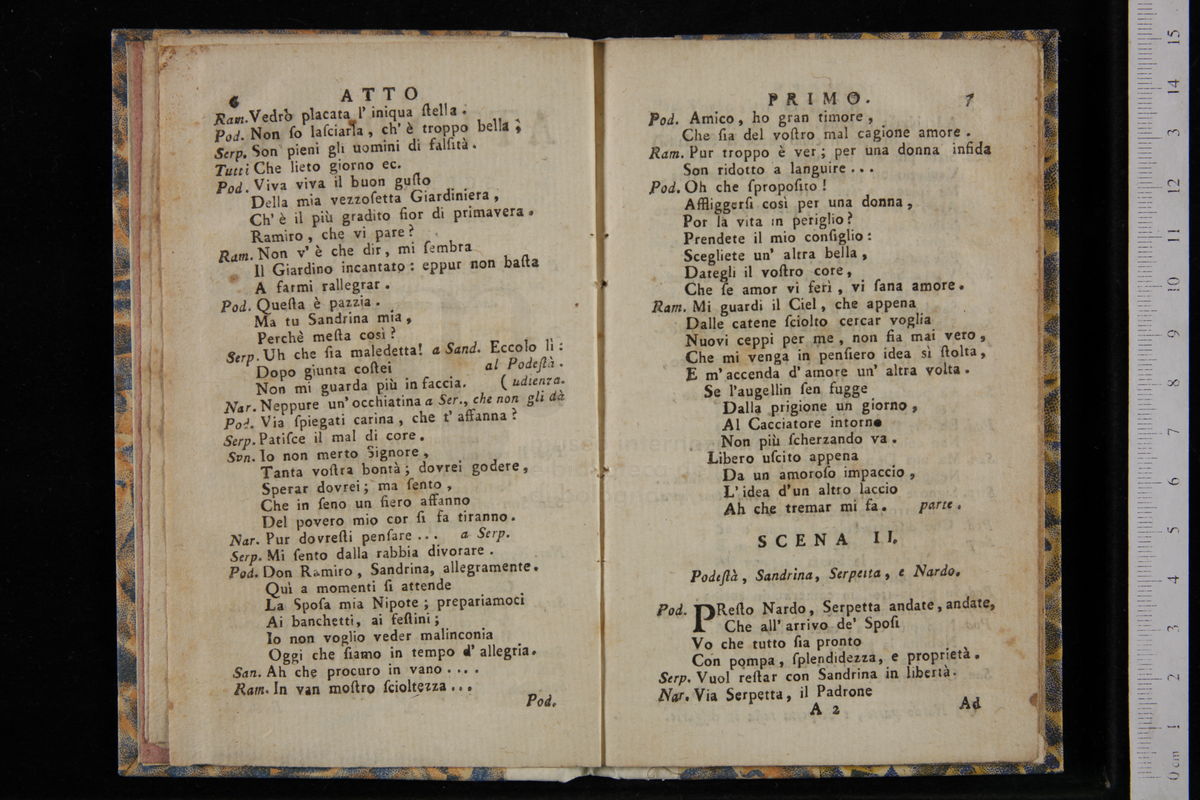 6 ATTO
Ram. Vedrò placata l' iniqua ſtella.
Pod. Non ſo laſciarla, ch' è troppo bella;
Serp. Son pieni gli uomini di falſità.
Tutti Che lieto giorno ec.
Pod. Viva viva il buon guſto
Della mia vezzoſetta Giardiniera,
Ch' è il più gradito fior di primavera.
Ramiro, che vi pare?
Ram. Non v' è che dir, mi ſembra
Il Giardino incantato: eppur non baſta
A farmi rallegrar.
Pod. Queſta è pazzia.
Ma tu Sandrina mia,
Perchè meſta così?
Serp. Uh che ſia maledetta! a Sand. Eccolo lì:
Dopo giunta coſtei al Podeſtà.
Non mi guarda più in faccia. ( udienza.
Nar. Neppure un' occhiatina a Ser., che non gli dà
Pod. Via ſpiegati carina, che t' affanna?
Serp. Patiſce il mal di core.
Son. Io non merto Signore,
Tanta voſtra bontà; dovrei godere,
Sperar dovrei; ma ſento,
Che in ſeno un fiero affanno
Del povero mio cor ſi fa tiranno.
Nar. Pur dovreſti penſare ... a Serp.
Serp. Mi ſento dalla rabbia divorare.
Pod. Don Ramiro, Sandrina, allegramente.
Quì a momenti ſi attende
La Spoſa mia Nipote; prepariamoci
Ai banchetti, ai feſtini;
Io non voglio veder malinconia
Oggi che ſiamo in tempo d' allegria.
San. Ah che procuro in vano ....
Ram. In van moſtro ſcioltezza ...
Pod.
PRIMO. 7
Pod. Amico, ho gran timore,
Che ſia del voſtro mal cagione amore.
Ram. Pur troppo è ver; per una donna infida
Son ridotto a languire ...
Pod. Oh che ſpropoſito!
Affliggerſi così per una donna,
Por la vita in periglio?
Prendete il mio conſiglio:
Scegliete un' altra bella,
Dategli il voſtro core,
Che ſe amor vi ferì, vi ſana amore.
Ram. Mi guardi il Ciel, che appena
Dalle catene ſciolto cercar voglia
Nuovi ceppi per me, non fia mai vero,
Che mi venga in penſiero idea sì ſtolta,
E m' accenda d' amore un' altra volta.
Se l'augellin ſen fugge
Dalla prigione un giorno,
Al Cacciatore intorno
Non più ſcherzando va.
Libero uſcito appena
Da un amoroſo impaccio,
L' idea d'un altro laccio
Ah che tremar mi fa. parte.
SCENA II.
Podeſtà, Sandrina, Serpetta, e Nardo.
Pod. PReſto Nardo, Serpetta andate, andate,
Che all' arrivo de' Spoſi
Vo che tutto ſia pronto
Con pompa, ſplendidezza, e proprietà.
Serp. Vuol reſtar con Sandrina in libertà.
Nar. Via Serpetta, il Padrone
A 2 Ad
0 cm 1 2 3 4 5 6 7 8 9 10 11 12 13 14 15